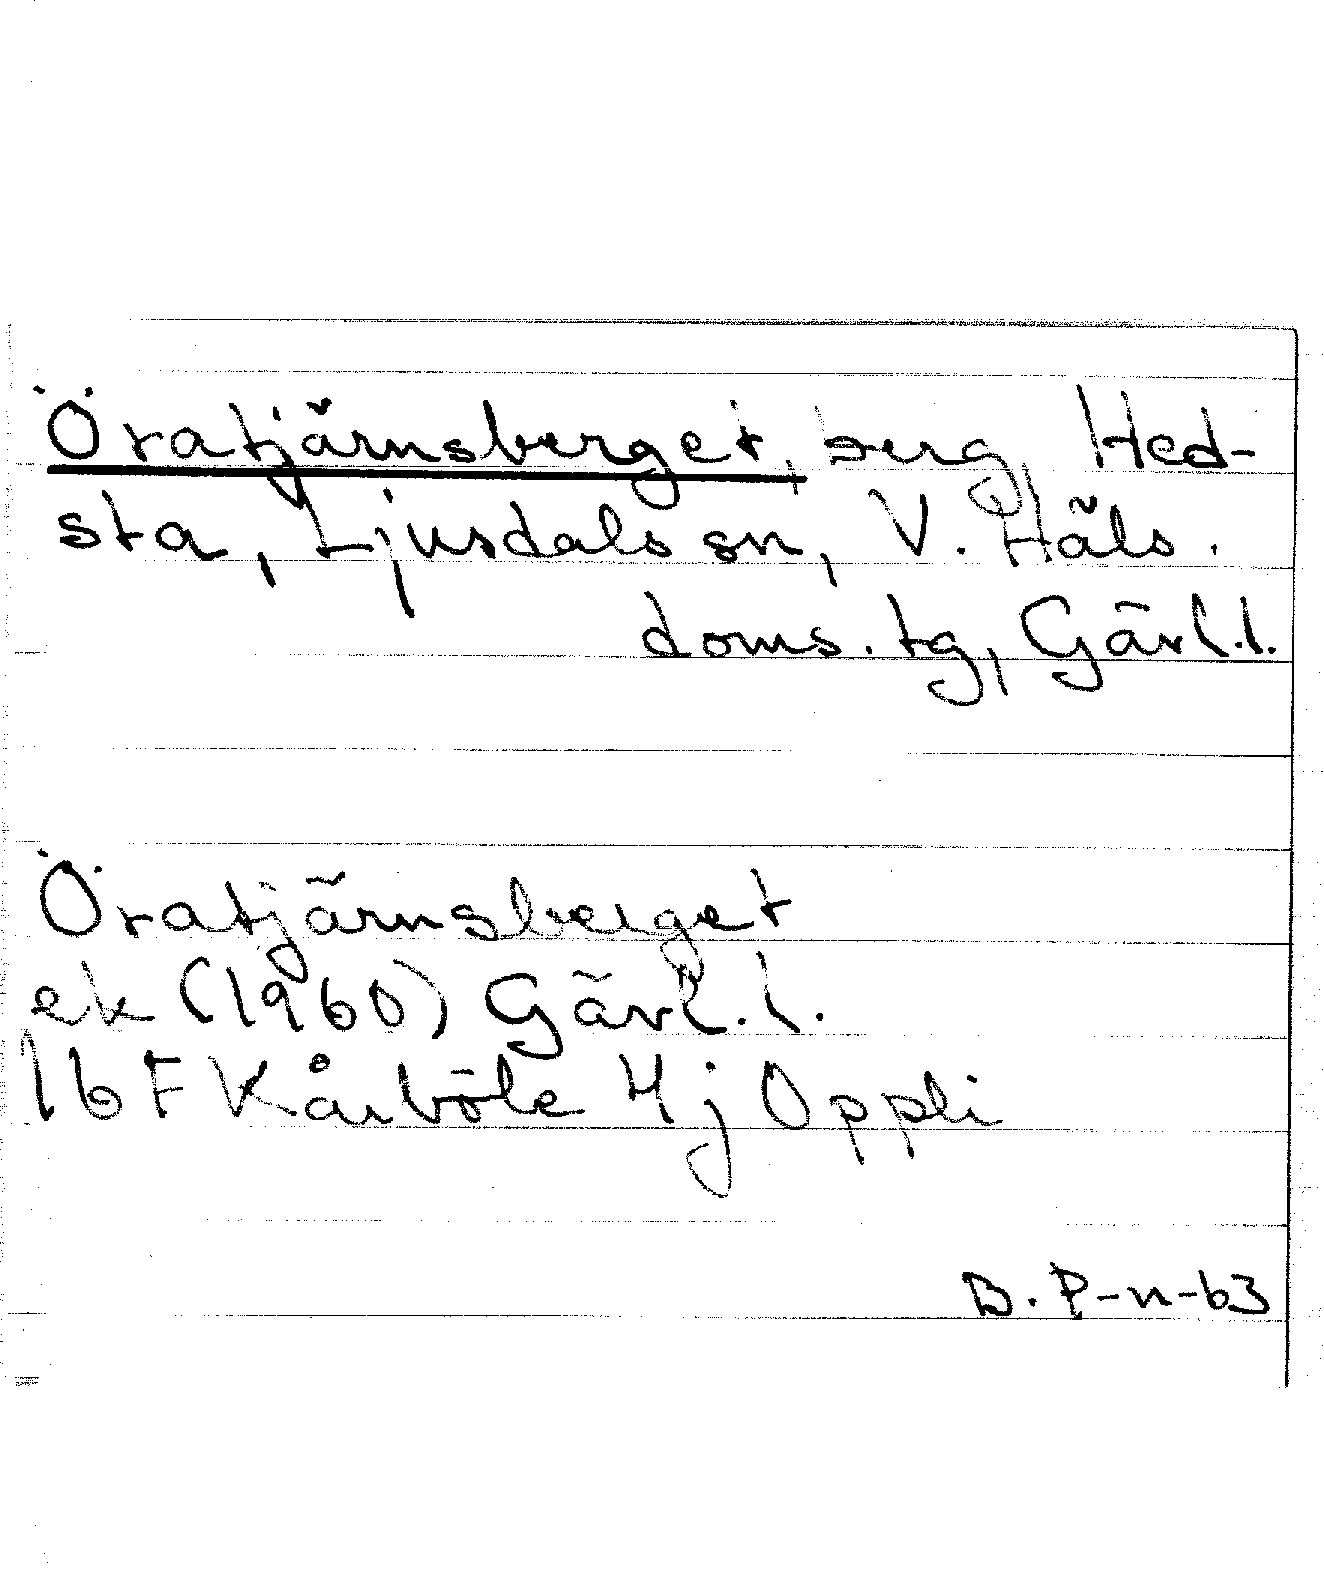 Öratjärnsberget, berg, Hed-
sta, Ljusdals sn, V. Häls.
doms. tg, Gävl.l.
Öratjärnsberget
ek (1960) Gävl.l.
16F Kårböle 4j Oppli
B. P-n-63